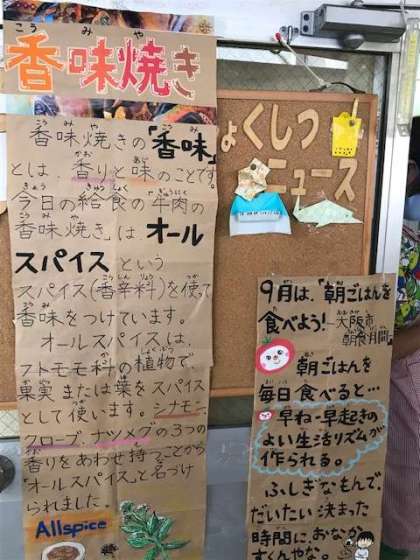 香味焼き
香味焼きの「香味」
とは、香りと味のことです。
今日の給食の牛肉の
香味焼きは オール
スパイス という
スパイス(香辛料)を使って
香味をつけています。
オールスパイスは、
フトモモ科の植物で
果実または葉をスパイス
として使います。シナモン、
クローブ、ナツメグの3つの
香りをあわせ持つことから
「オールスパイス」と名づけ
られました。
Allspice
ょくしつ
ニュース
9月は、「朝ごはんを
食べよう!」大阪市
朝食月間
朝ごはんを
毎日食べると…
早ね・早起きの
よい生活リズムが
作られる。
ふしぎなもんで、
だいたい決まった
時間に、おなかが
すくんやな。